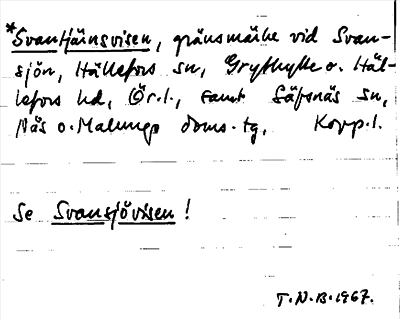 *Svantjärnsvisen, gränsmärke vid Svan-
sjön, Hällefors sn, Grythytte o. Häl-
lefors hd, Ör. l., samt Säfsnäs sn,
Nås o. Malungs doms. tg. Kopp. l.
Se Svansjövisen!
T. N. B. 1967.